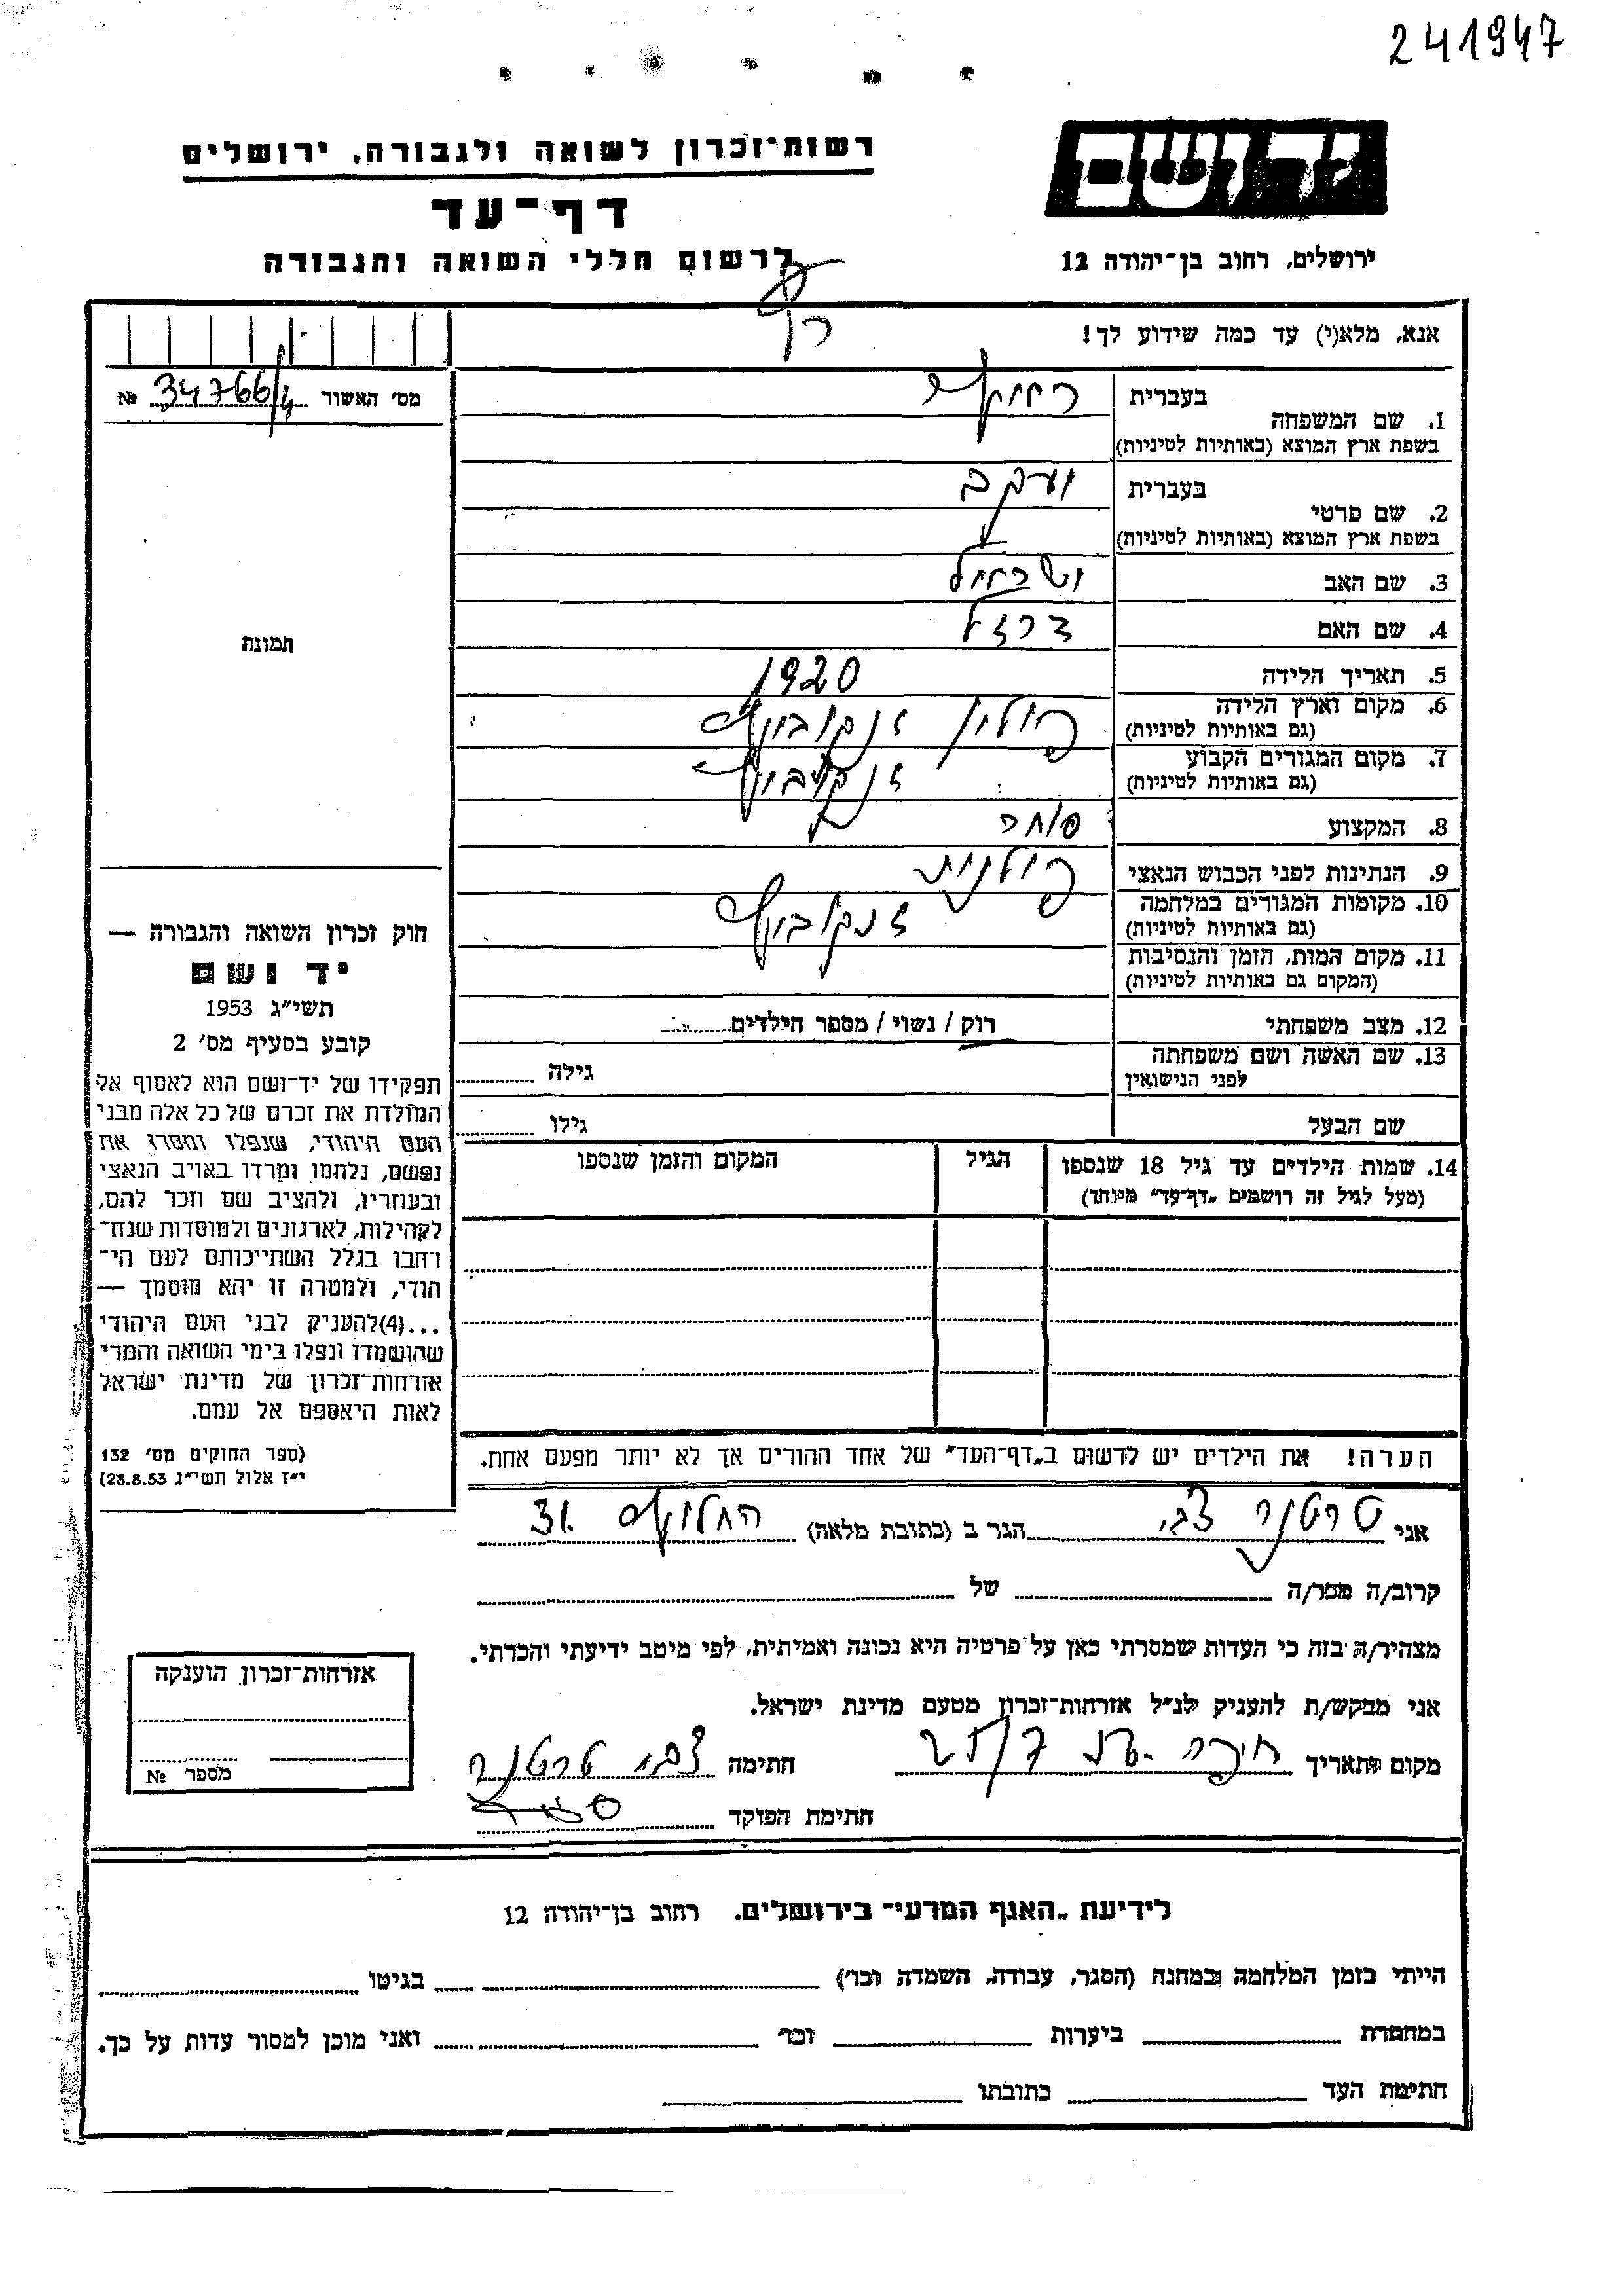 241947
יד ושם
רשות־זכרון לשואה ולגבורה, ירושלים
דף־עד
לרשום חללי השואה והגבורה
ירושלים, רחוב בן־יהודה 12
אנא, מלא(י) עד כמה שידוע לך!
מס׳ האשור 34766/4 №
תמונה
בעברית
1. שם המשפחה
בשפת ארץ המוצא (באותיות לטיניות)
בעברית יעקב
2. שם פרטי
בשפת ארץ המוצא (באותיות לטיניות)
3. שם האב ישראל
4. שם האם
5. תאריך הלידה 1920
6. מקום וארץ הלידה פולין
(גם באותיות לטיניות)
7. מקום המגורים הקבוע
(גם באותיות לטיניות)
8. המקצוע סוחר
9. הנתינות לפני הכבוש הנאצי פולנית
10. מקומות המגורים במלחמה
(גם באותיות לטיניות)
11. מקום המות, הזמן והנסיבות
(המקום גם באותיות לטיניות)
12. מצב משפחתי רוק / נשוי / מספר הילדים
13. שם האשה ושם משפחתה גילה
לפני הנישואין
שם הבעל גילו
14. שמות הילדים עד גיל 18 שנספו הגיל המקום והזמן שנספו
(מעל לגיל זה רושמים „דף־עד״ מיוחד)
חוק זכרון השואה והגבורה —
יד ושם
תשי״ג 1953
קובע בסעיף מס׳ 2
תפקידו של יד־ושם הוא לאסוף אל
המולדת את זכרם של כל אלה מבני
העם היהודי, שנפלו ומסרו את
נפשם, נלחמו ומרדו באויב הנאצי
ובעוזריו, ולהציב שם וזכר להם,
לקהילות, לארגונים ולמוסדות שנח־
רחבו בגלל השתייכותם לעם הי־
הודי, ולמטרה זו יהא מוסמך —
...(4)להעניק לבני העם היהודי
שהושמדו ונפלו בימי השואה והמרי
אזרחות־זכרון של מדינת ישראל
לאות היאספם אל עמם.
(ספר החוקים מס׳ 132
י״ז אלול תשי״ג 28.8.53)
הערה! את הילדים יש לרשום ב„דף־העד״ של אחד ההורים אך לא יותר מפעם אחת.
אני טרטנר צבי הגר ב (כתובת מלאה) החלוץ 31
קרוב/ה מכר/ה של
מצהיר/ה בזה כי העדות שמסרתי כאן על פרטיה היא נכונה ואמיתית, לפי מיטב ידיעתי והכרתי.
אני מבקש/ת להעניק לנ״ל אזרחות־זכרון מטעם מדינת ישראל.
מקום ותאריך חיפה חתימה צבי טרטנר
חתימת הפוקד
אזרחות־זכרון הוענקה
מספר №
לידיעת „האגף המדעי״ בירושלים, רחוב בן־יהודה 12
הייתי בזמן המלחמה במחנה (הסגר, עבודה, השמדה וכו׳) בגיטו
במחתרת ביערות וכו׳ ואני מוכן למסור עדות על כך.
חתימת העד כתובתו